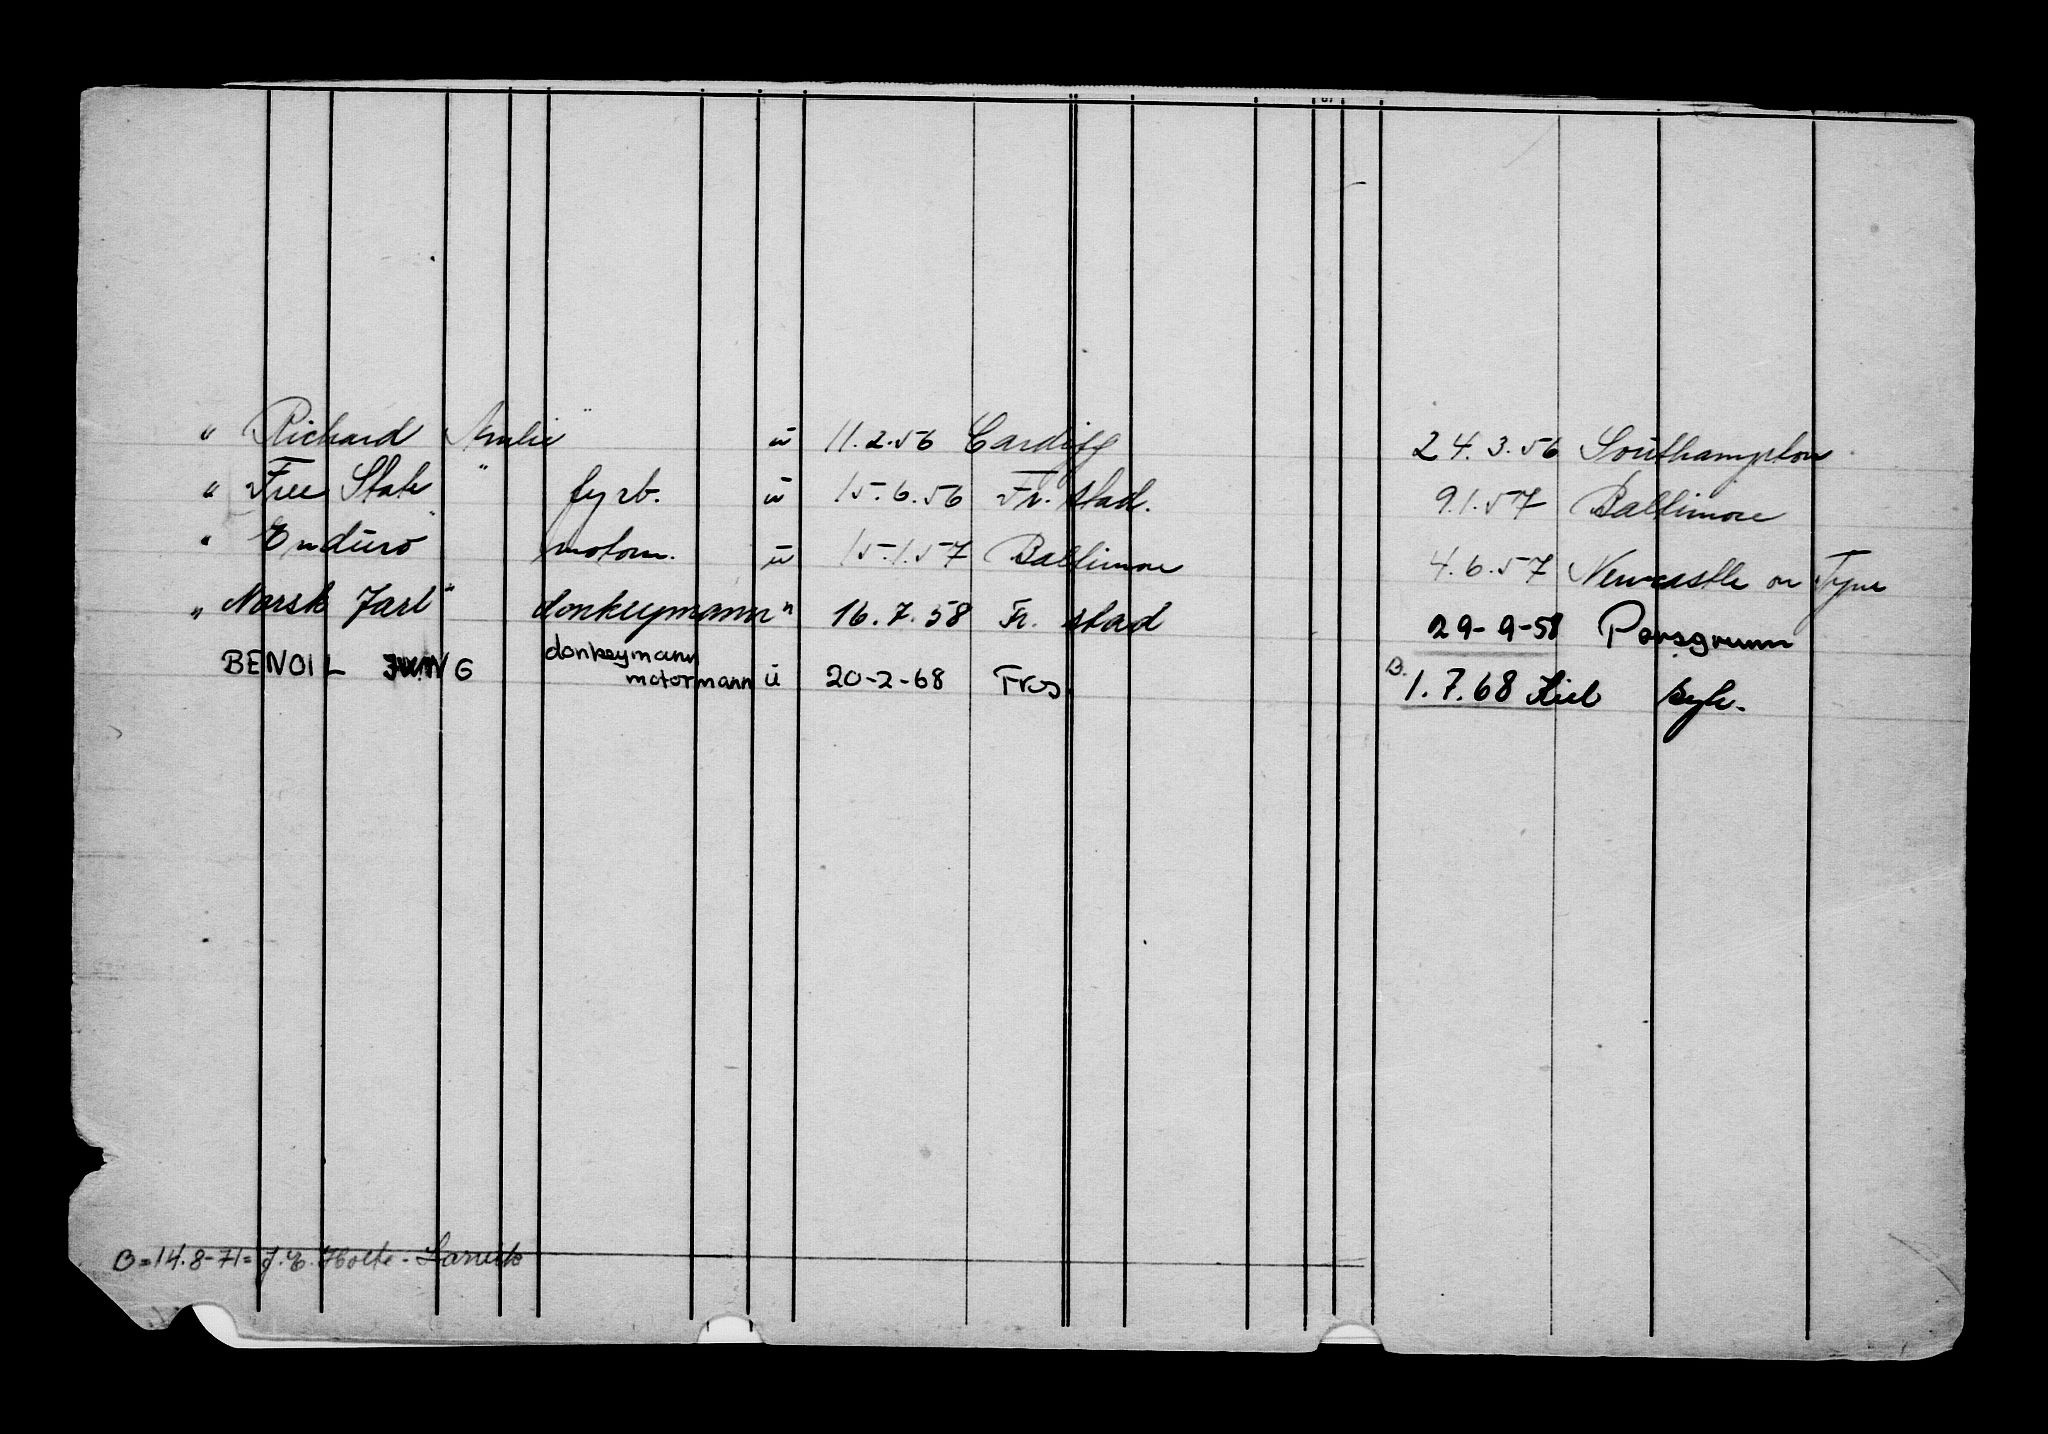 " Richard Amlie " u 11.2.56 Cardiff 24.3.56 Southampton
" Free State " fyrb. u 15.6.56 Fr. stad. 9.1.57 Baltimore
" Enduro " motorm. u 15.1.57 Baltimore 4.6.57 Newcastle on Tyne
" Norsk Jarl " donkeymann " 16.7.58 Fr. stad 29-9-58 Porsgrunn
BENOIL donkeymann motormann u 20-2-68 B. 1.7.68 Kiel syk.
B=14.8-71= J.E. Holte - Larvik